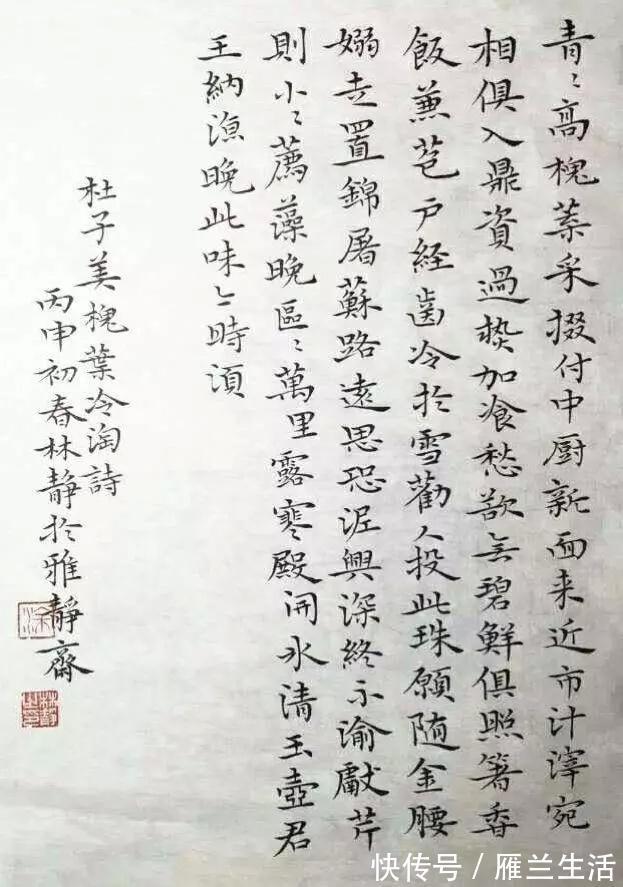 青〻高槐葉采掇付中厨新面来近市汁滓宛
相俱入鼎資過熱加飡愁欲无碧鮮俱照箸香
飯兼苞户経齒冷於雪勸人投此珠願随金腰
嫋走置錦屠蘇路遠思恐泥興深終不渝獻芹
則小〻薦藻晚區〻萬里露寒殿開冰清玉壺君
王納凉晚此味亦時須
杜子美槐葉冷淘詩
丙申初春林靜於雅靜齋
快传号/雁兰生活